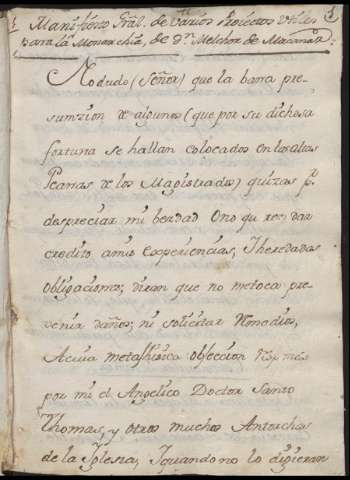 1
Manifiesto Gral. de Varios Proiectos Utiles
para la Monarchia, de dn. Melchor de Macanaz
No dudo (Señor) que la barra pre-
sumzion de algunos (que por su dichosa
fortuna se hallan colocados en los altos
de los Magistrados) quizas pr.
despreciar mi berdad O no querer dar
credito a mis Experiencias, I heredadas
obligaciones; diran que no me toca pre-
venir daños; ni solicitar Remedios,
Acuia metaphisica obieccion
por mi el Angelico Doctor Santo
Thomas, y otros muchos Antorchas
de la Iglesia, I quando no lo digieran